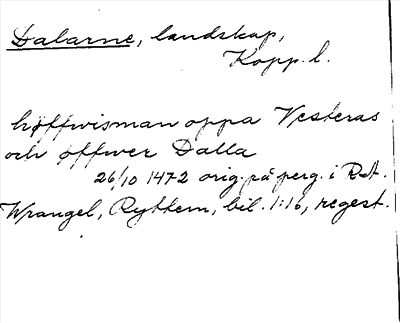 Dalarne, landskap,
Kopp. l.
höffwisman oppa Vesteras
och offwer Dalla
26/10 1472 orig. på perg. i RA.
Wrangel, Ryttern, bil. 1:16, regest.